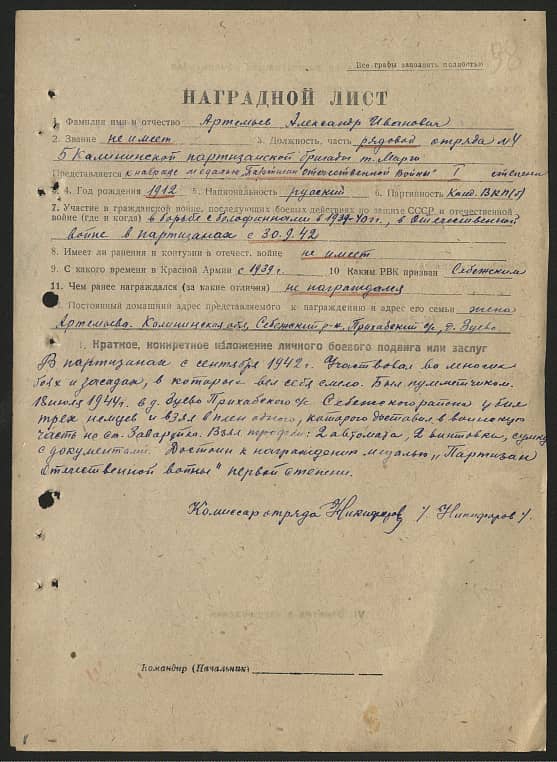 98
Все графы заполнять полностью
НАГРАДНОЙ ЛИСТ
1. Фамилия имя и отчество Артемьев Александр Иванович
2. Звание не имеет 3. Должность, часть рядовой отряда №4
5 Калининской партизанской бригады т. Марго
Представляется к награде медалью "Партизан отечественной войны" I степени
4. Год рождения 1912 5. Национальность русский 6. Партийность Канд. ВКП(б)
7. Участие в гражданской войне, последующих боевых действиях по защите СССР и отечественной
войне (где и когда) в борьбе с белофиннами в 1939-40 гг., в Отечественной
войне в партизанах с 30.9.42
8. Имеет ли ранения и контузии в отечест. войне не имеет
9. С какого времени в Красной Армии с 1939 г. 10 Каким РВК призван Себежским
11. Чем ранее награждался (за какие отличия) не награждался
Постоянный домашний адрес представляемого к награждению и адрес его семьи жена
Артемьева. Калининская обл, Себежский р-н, Прихабский с/с, д. Зуево
I. Краткое, конкретное изложение личного боевого подвига или заслуг
В партизанах с сентября 1942 г. Участвовал во многих
боях и засадах, в которых вел себя смело. Был пулеметчиком.
18 июля 1944 г. в д. Зуево Прихабского с/с Себежского района убил
трех немцев и взял в плен одного, которого доставил в воинскую
часть на ст. Заваруйка. Взял трофеи: 2 автомата, 2 винтовки, сумку
с документами. Достоин к награждению медалью "Партизан
отечественной войны" первой степени.
Комиссар отряда Никифоров /. Никифоров /.
Командир (Начальник)